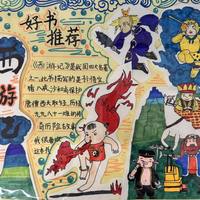 好书
推荐
西
游
《西游记》是我国四大名著
之一,此书描写的是孙悟空、
猪八戒、沙和尚保护
唐僧西天取经,历经
九九八十一难的
奇历险故事